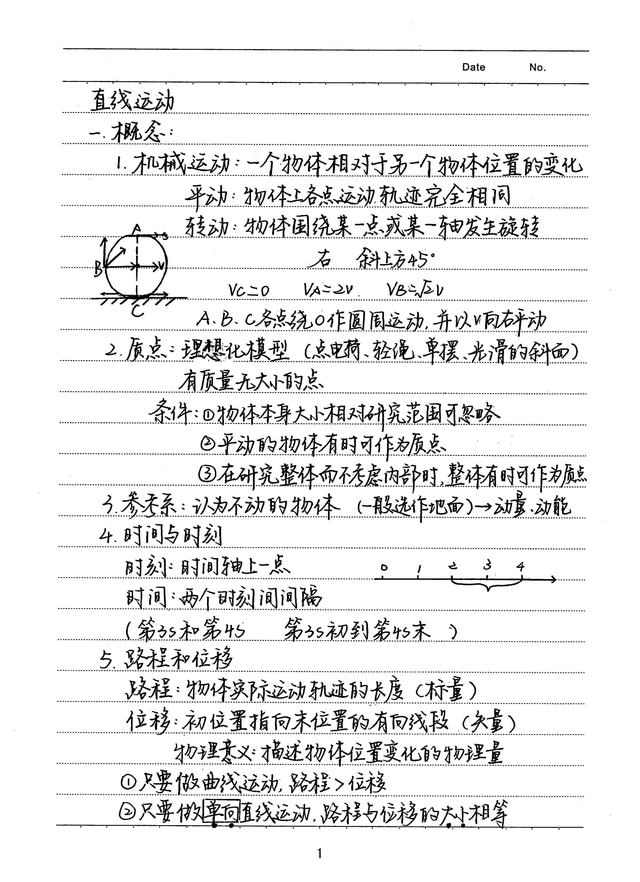 Date No.
直线运动
一.概念:
1.机械运动:一个物体相对于另一个物体位置的变化
平动:物体上各点运动轨迹完全相同
转动:物体围绕某一点或某一轴发生旋转
A
B
V
C
右 斜上方45°
Vc=0 VA=2V VB=√2V
A、B、C各点绕O作圆周运动,并以V向右平动
2.质点:理想化模型(点电荷、轻绳、单摆、光滑的斜面)
有质量无大小的点
条件:①物体本身大小相对研究范围可忽略
②平动的物体有时可作为质点
③在研究整体而不考虑内部时,整体有时可作为质点
3.参考系:认为不动的物体(一般选作地面)→动量、动能
4.时间与时刻
时刻:时间轴上一点
0 1 2 3 4
时间:两个时刻间间隔
(第3s和第4s 第3s初到第4s末 )
5.路程和位移
路程:物体实际运动轨迹的长度(标量)
位移:初位置指向末位置的有向线段(矢量)
物理意义:描述物体位置变化的物理量
①只要做曲线运动,路程>位移
②只要做单向直线运动,路程与位移的大小相等
1